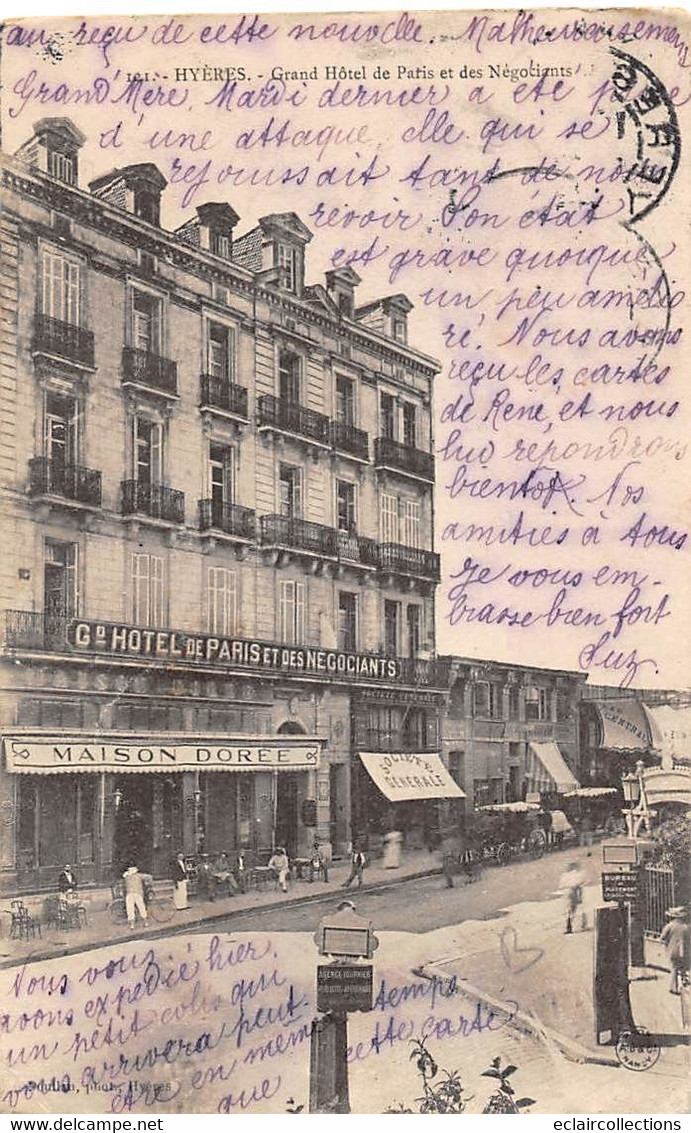 au reçu de cette nouvelle. Malheureusement
191. - HYÈRES. - Grand Hôtel de Paris et des Négociants
Grand'Mère, Mardi dernier a été prise
d'une attaque, elle qui se
rejouissait tant de nous
revoir Son état
est grave quoique
un peu amélio
ré. Nous avons
reçu les cartes
de René, et nous
lui répondrons
bientôt. Nos
amitiés à tous
Je vous em-
brasse bien fort
Suz.
GD HOTEL DE PARIS ET DES NÉGOCIANTS
SOCIÉTÉ GÉNÉRALE
MAISON DORÉE
SOCIÉTÉ
GÉNÉRALE
CENTRAL
BUREAU
DE
PLACEMENT
AGENCE FOURNIER
Nous vous
avons expédié hier
un petit colis qui
vous arrivera peut
être en même temps
que cette carte
phot., Hyères
NANCY
eclaircollections